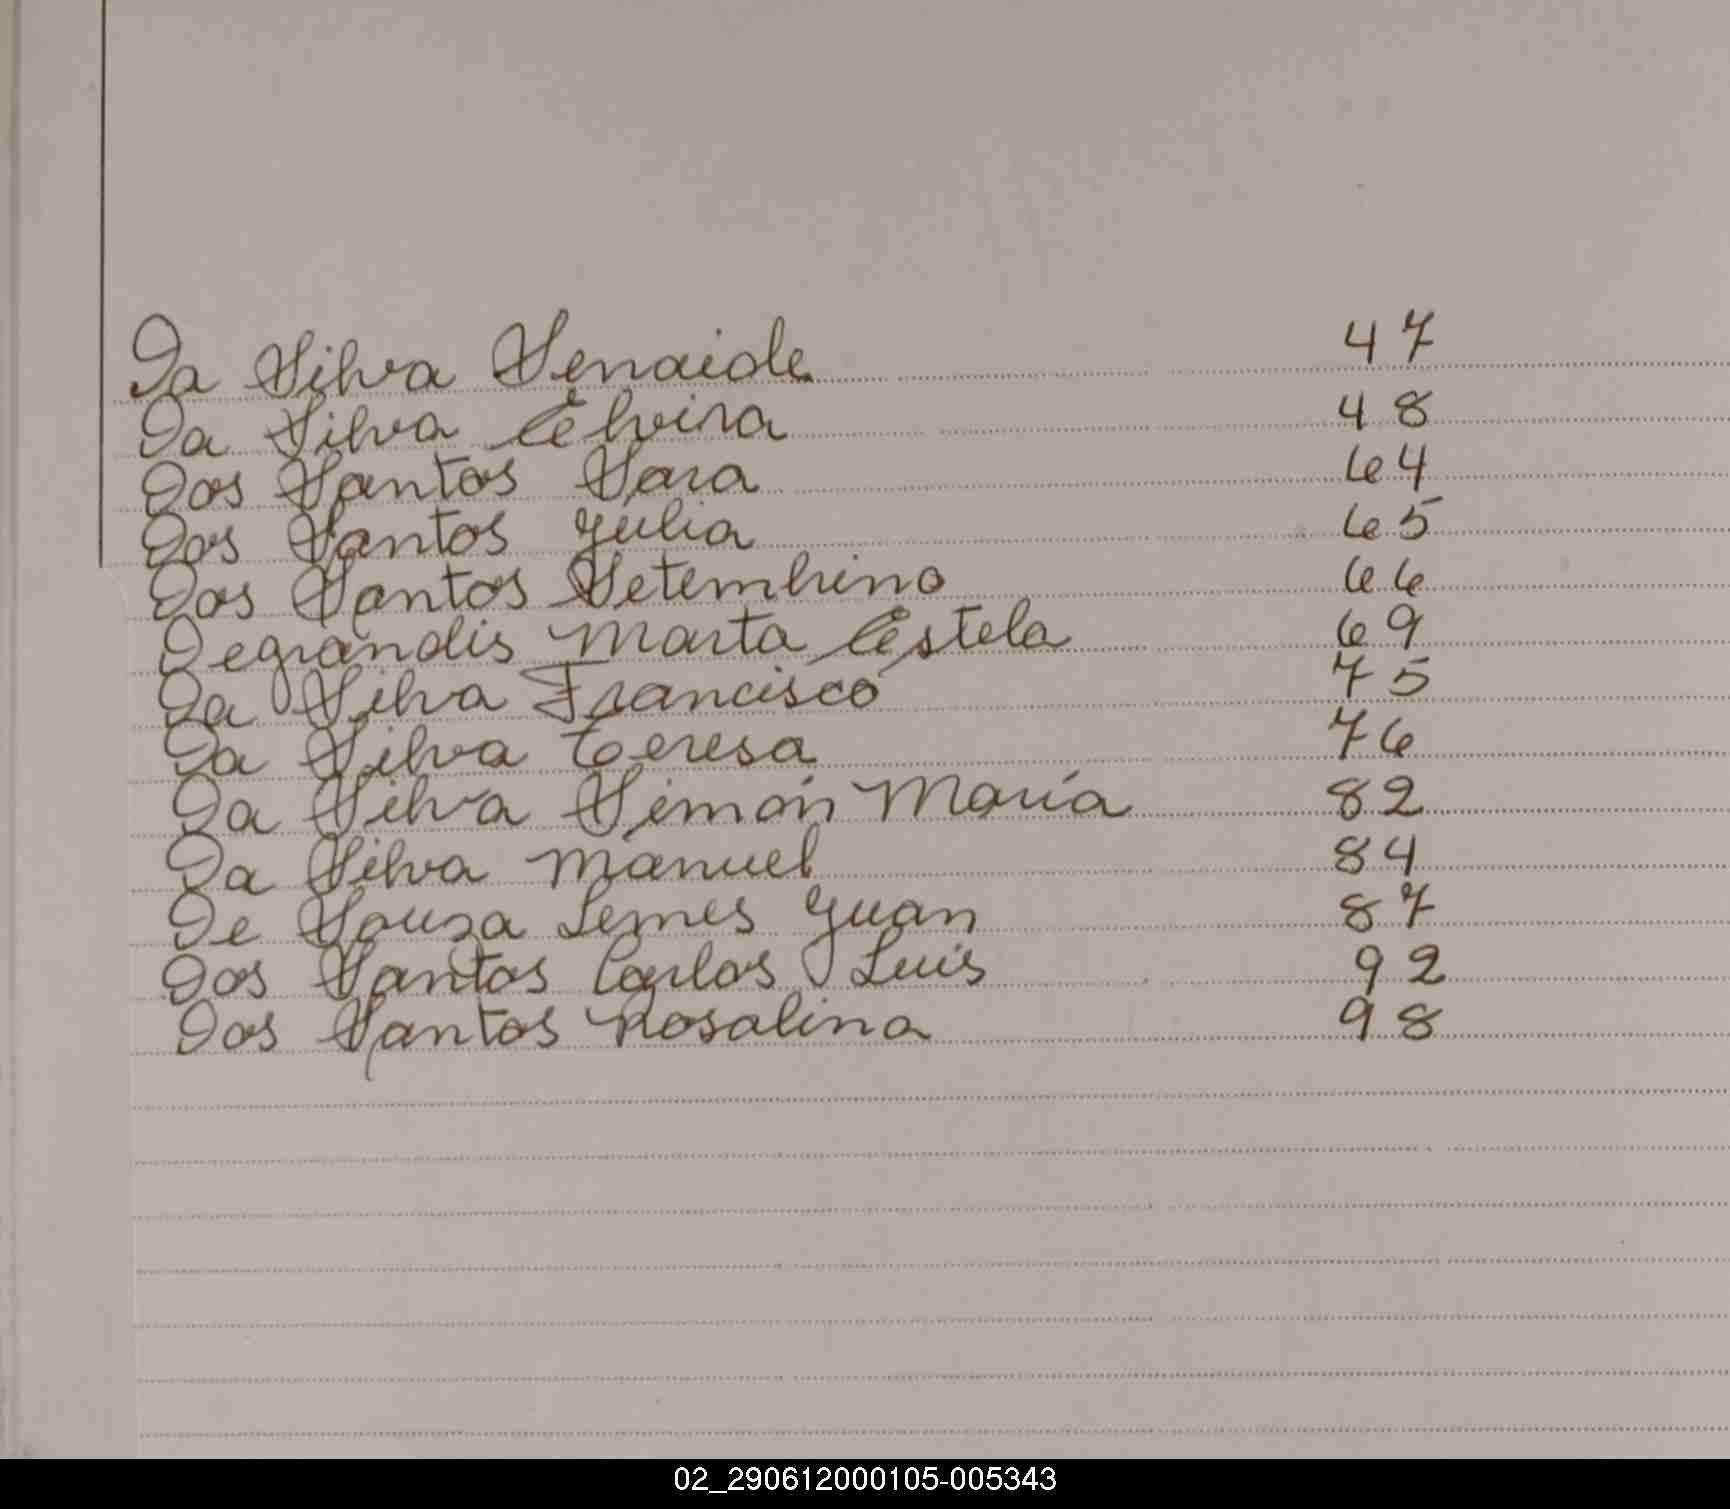 Da Silva Senaide 47
Da Silva Elvira 48
Dos Santos Sara 64
Dos Santos Julia 65
Dos Santos Setembrino 66
Degrandis Marta Estela 69
Da Silva Francisco 75
Da Silva Teresa 76
Da Silva Simón María 82
Da Silva Manuel 84
De Souza Lemes Juan 87
Dos Santos Carlos Luis 92
Dos Santos Rosalina 98
02_290612000105-005343